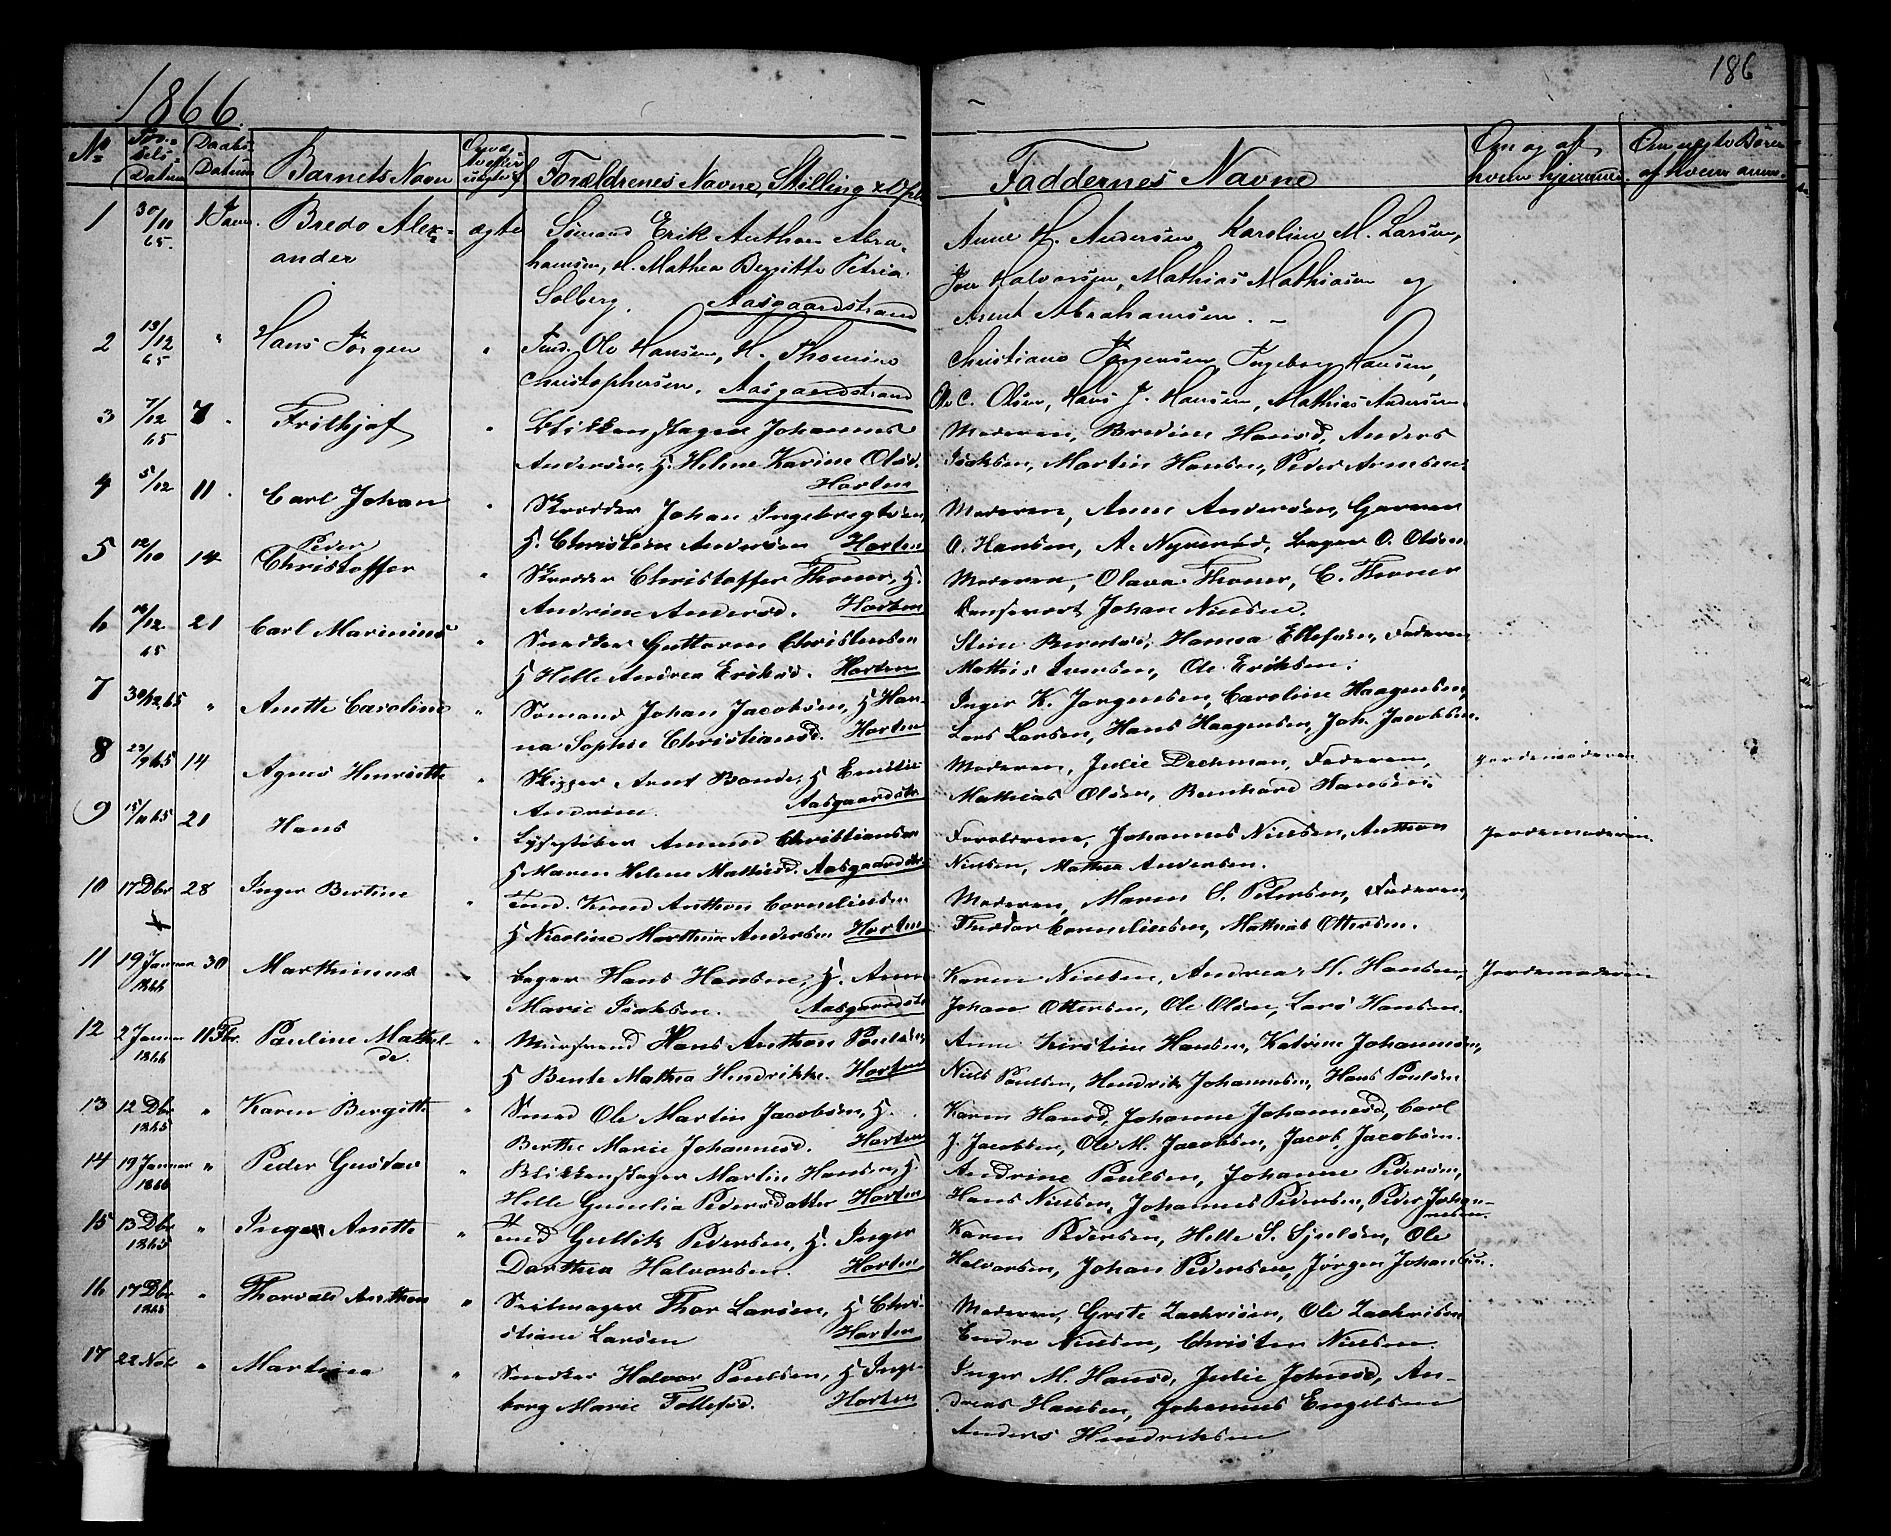 1866.
186
No
Fød-
sels-
Datum
Daabs
Datum
Barnets Navn
Forældrenes Navne, Stilling
Faddernes Navne
Om og af
hvem hjemme
Om uægte Børn
af hvem anm.
1 30/11 65. 1 Janr. Bredo Alex-
ander
ægte
Sømand Erik Anthon Abra-
hamsen, H. Mathea Bergitte Petria
Solberg. Aasgaardstrand
Anne H. Andersen, Karoline M. Larsen,
Halvorsen, Mathias Mathiasen og
Arent Abrahamsen. —
2 13/12 65 " Hans Jørgen "
Tmd. Ole Hansen, H. Thomine
Christophersen. Aasgaardstrand
Christiane Jørgensen, Ingeborg Hansen,
C. Olsen, Hans J. Hansen, Mathias Andersen.
3 7/12 65 7 " Frithjof "
Blikkenslager Johannes
Andersen, H. Helene Karine Olsd.
Horten
Moderen, Bredine Hansd, Anders
Isaksen, Martin Hansen, Peder
4 5/12 11 " Carl Johan "
Skrædder Johan Ingebregtsen,
H. Christine Andersen Horten
Moderen, Anne Andersen, Garver
O. Hansen, A. Bager O. Olsen
5 12/10 14 Peder
Christoffer "
Skrædder Christoffer Thoner, H.
Andrine Andersd. Horten
Moderen, Olava Thoner, C. Thoner
Johan Nielsen.
6 12 65 21 Carl Marinius "
Snedker Guttorm Christensen
H Helle Andrea Eriksd. Horten
Stine Hansa Ellefsen, Faderen
Mathis Iversen, Ole Eriksen.
7 30/12 65 " Anette Caroline "
Sømand Johan Jacobsen, H Han-
na Sophie Christiansd. Horten
Inger K. Jørgensen, Caroline Haagensen,
Lars Larsen, Hans Haagensen, Joh. Jacobsen.
8 23/9 65 14 Agnes Henriette "
Skipper Arnt Bonde, H Emilie
Andrine. Aasgaardstr.
Moderen, Julie Dechman, Faderen,
Mathias Olsen, Bernhard Hansen.
Jordemoderen
9 15/11 65 21 Hans "
Lysestøber Amund Christiansen
H Maren Helene Mathisd. Aasgaardstr
Forældrene, Johannes Nielsen, Anthon
Nielsen, Mathea Andersen.
Jordemoderen
10 17 Dbr 28 Inger Bertine "
Tmd. Knud Anthon Corneliusen
H Nicoline Marthine Andersen Horten
Moderen, Maren S. Petersen, Faderen,
Theodor Corneliusen, Mathias Ottersen.
11 19 Januar 1866 30 Marthinus "
Bager Hans Hansen, H. Anne
Marie Isaksen. Aasgaardstr
Karen Nielsen, Andrea M. Hansen,
Johan Ottersen, Ole Olsen, Lars Hansen.
Jordemoderen
12 2 Januar 1866 11 Fbr. Pauline Mathil-
de "
Murspend Hans Anthon Paulsen,
H Bente Mathea Hendrikke. Horten
Anne Kirstine Hansen, Katrine Johannesen,
Niels Paulsen, Hendrik Johannesen, Hans Paulsen
13 12 Dbr 1865 " Karen Bergitte "
Smed Ole Martin Jacobsen, H.
Berthe Marie Johannesd. Horten
Karen Hansd, Johanne Johannesd, Carl
J. Jacobsen, Ole M. Jacobsen, Jacob Jacobsen.
14 19 Januar 1866 " Peder Gustav "
Blikkenslager Martin Hansen, H.
Helle Gunelia Pedersdatter Horten
Andrine Paulsen, Johanne Pedersen,
Hans Nielsen, Johannes Pedersen, Peder Johan-
nesen.
15 13 Dbr 1865 " Inger Anette "
Tmd Gullik Pedersen, H. Inger
Dorthea Halvorsen. Horten
Karen Pedersen, Helle S. Ole
Halvorsen, Johan Pedersen, Jørgen Johansen.
16 17 Dbr 1865 " Thorvald Anthon "
Seilmager Thor Larsen, H Chri-
stiane Larsen Horten
Moderen, Grete Zachrisen, Ole Zachrisen
Endre Nielsen, Christen Nielsen.
17 22 Nov " Martinia "
Snedker Halvor Paulsen, H Inge-
borg Marie Tollefsd. Horten
Inger M. Hansd, Julie Johnsd, An-
dreas Hansen, Johannes Engelsen
Anders Hendriksen